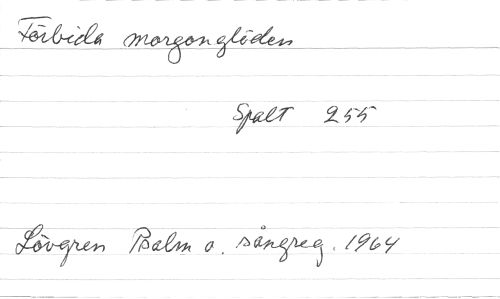 Förbida morgonglöden
Spalt 255
Lövgren Psalm o. sångreg. 1964